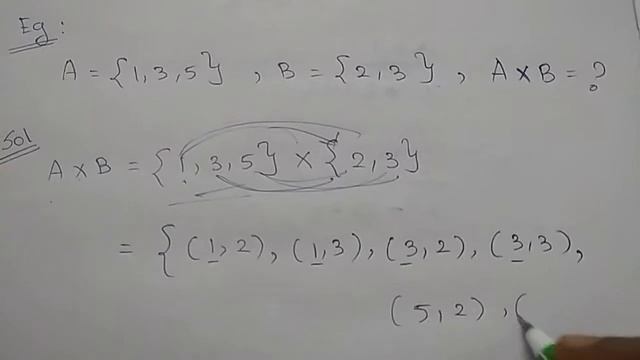 Eg :
A = {1, 3, 5} , B = {2, 3} , A × B = ?
Sol
A × B = {1, 3, 5} × {2, 3}
= { (1, 2), (1, 3), (3, 2), (3, 3),
(5, 2) , (